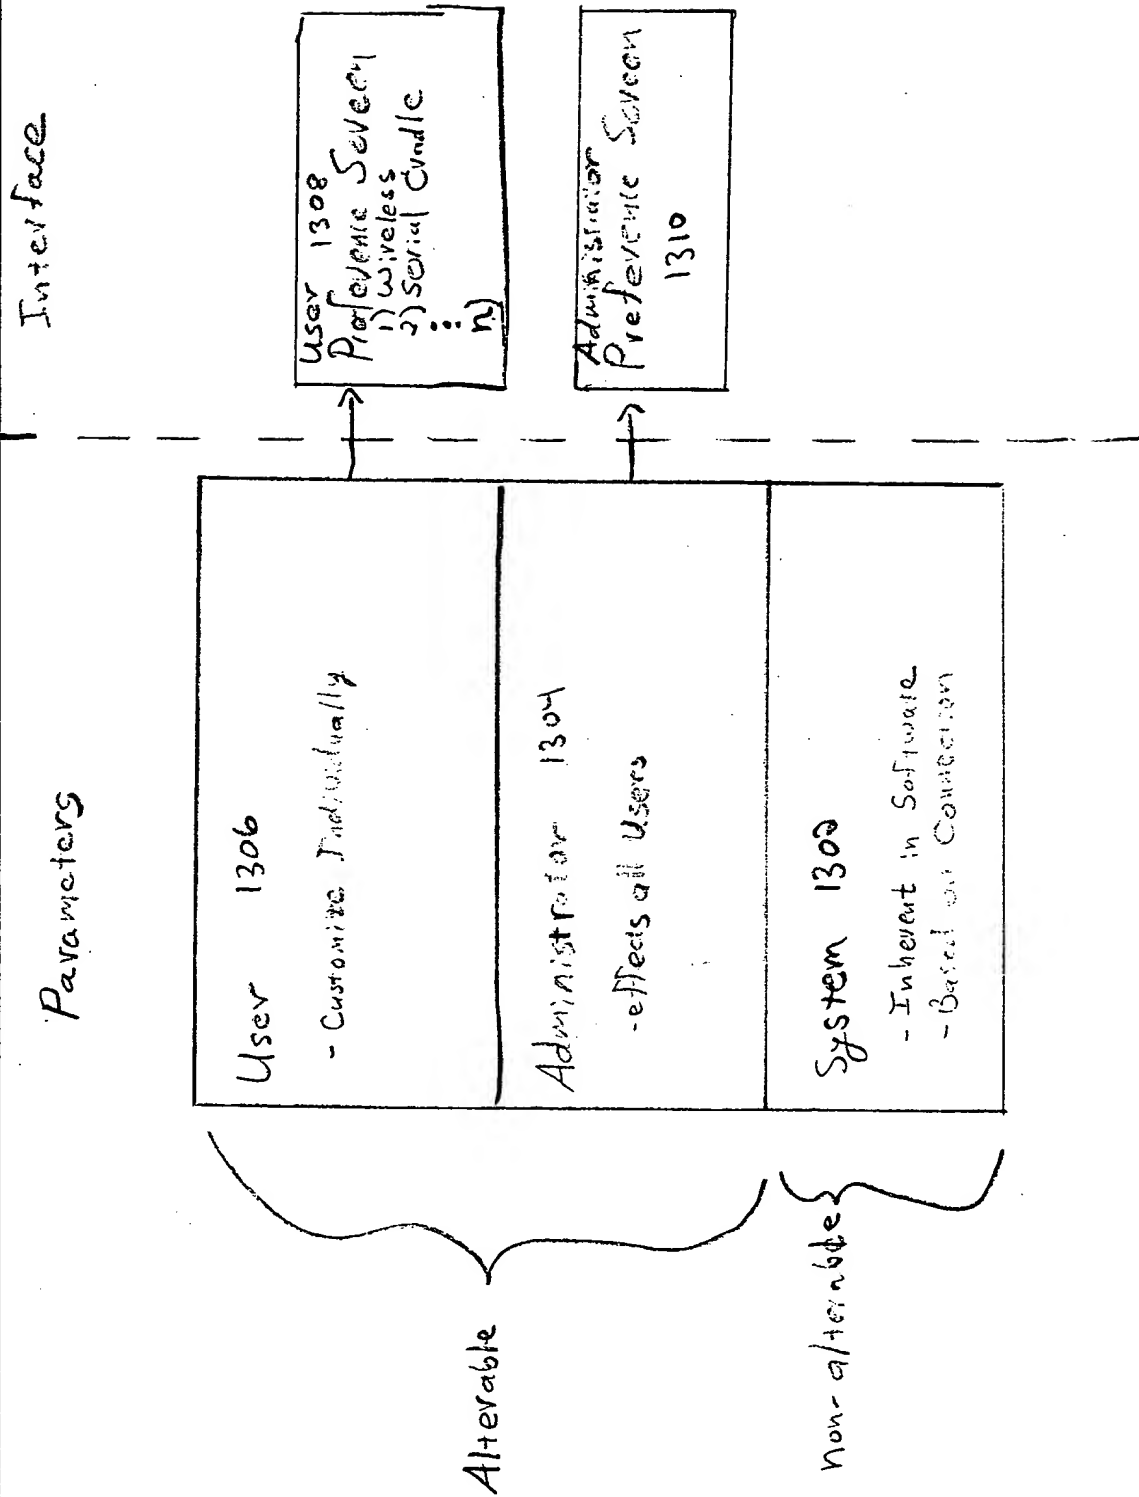 Parameters
Interface
Alterable
non-alterable
User 1306
- Customize Individually
Administrator 1304
- effects all Users
System 1302
- Inherent in Software
- Based on Connection
User 1308
Preference Screen
1) Wireless
2) Serial Cradle
⋮
n)
Administrator
Preference Screen
1310